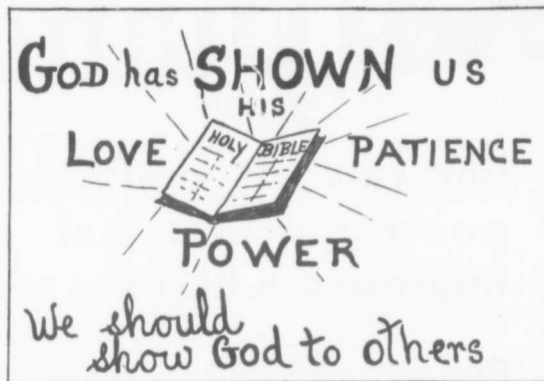 GOD has SHOWN US
HIS
LOVE HOLY BIBLE PATIENCE
POWER
We should
show God to others